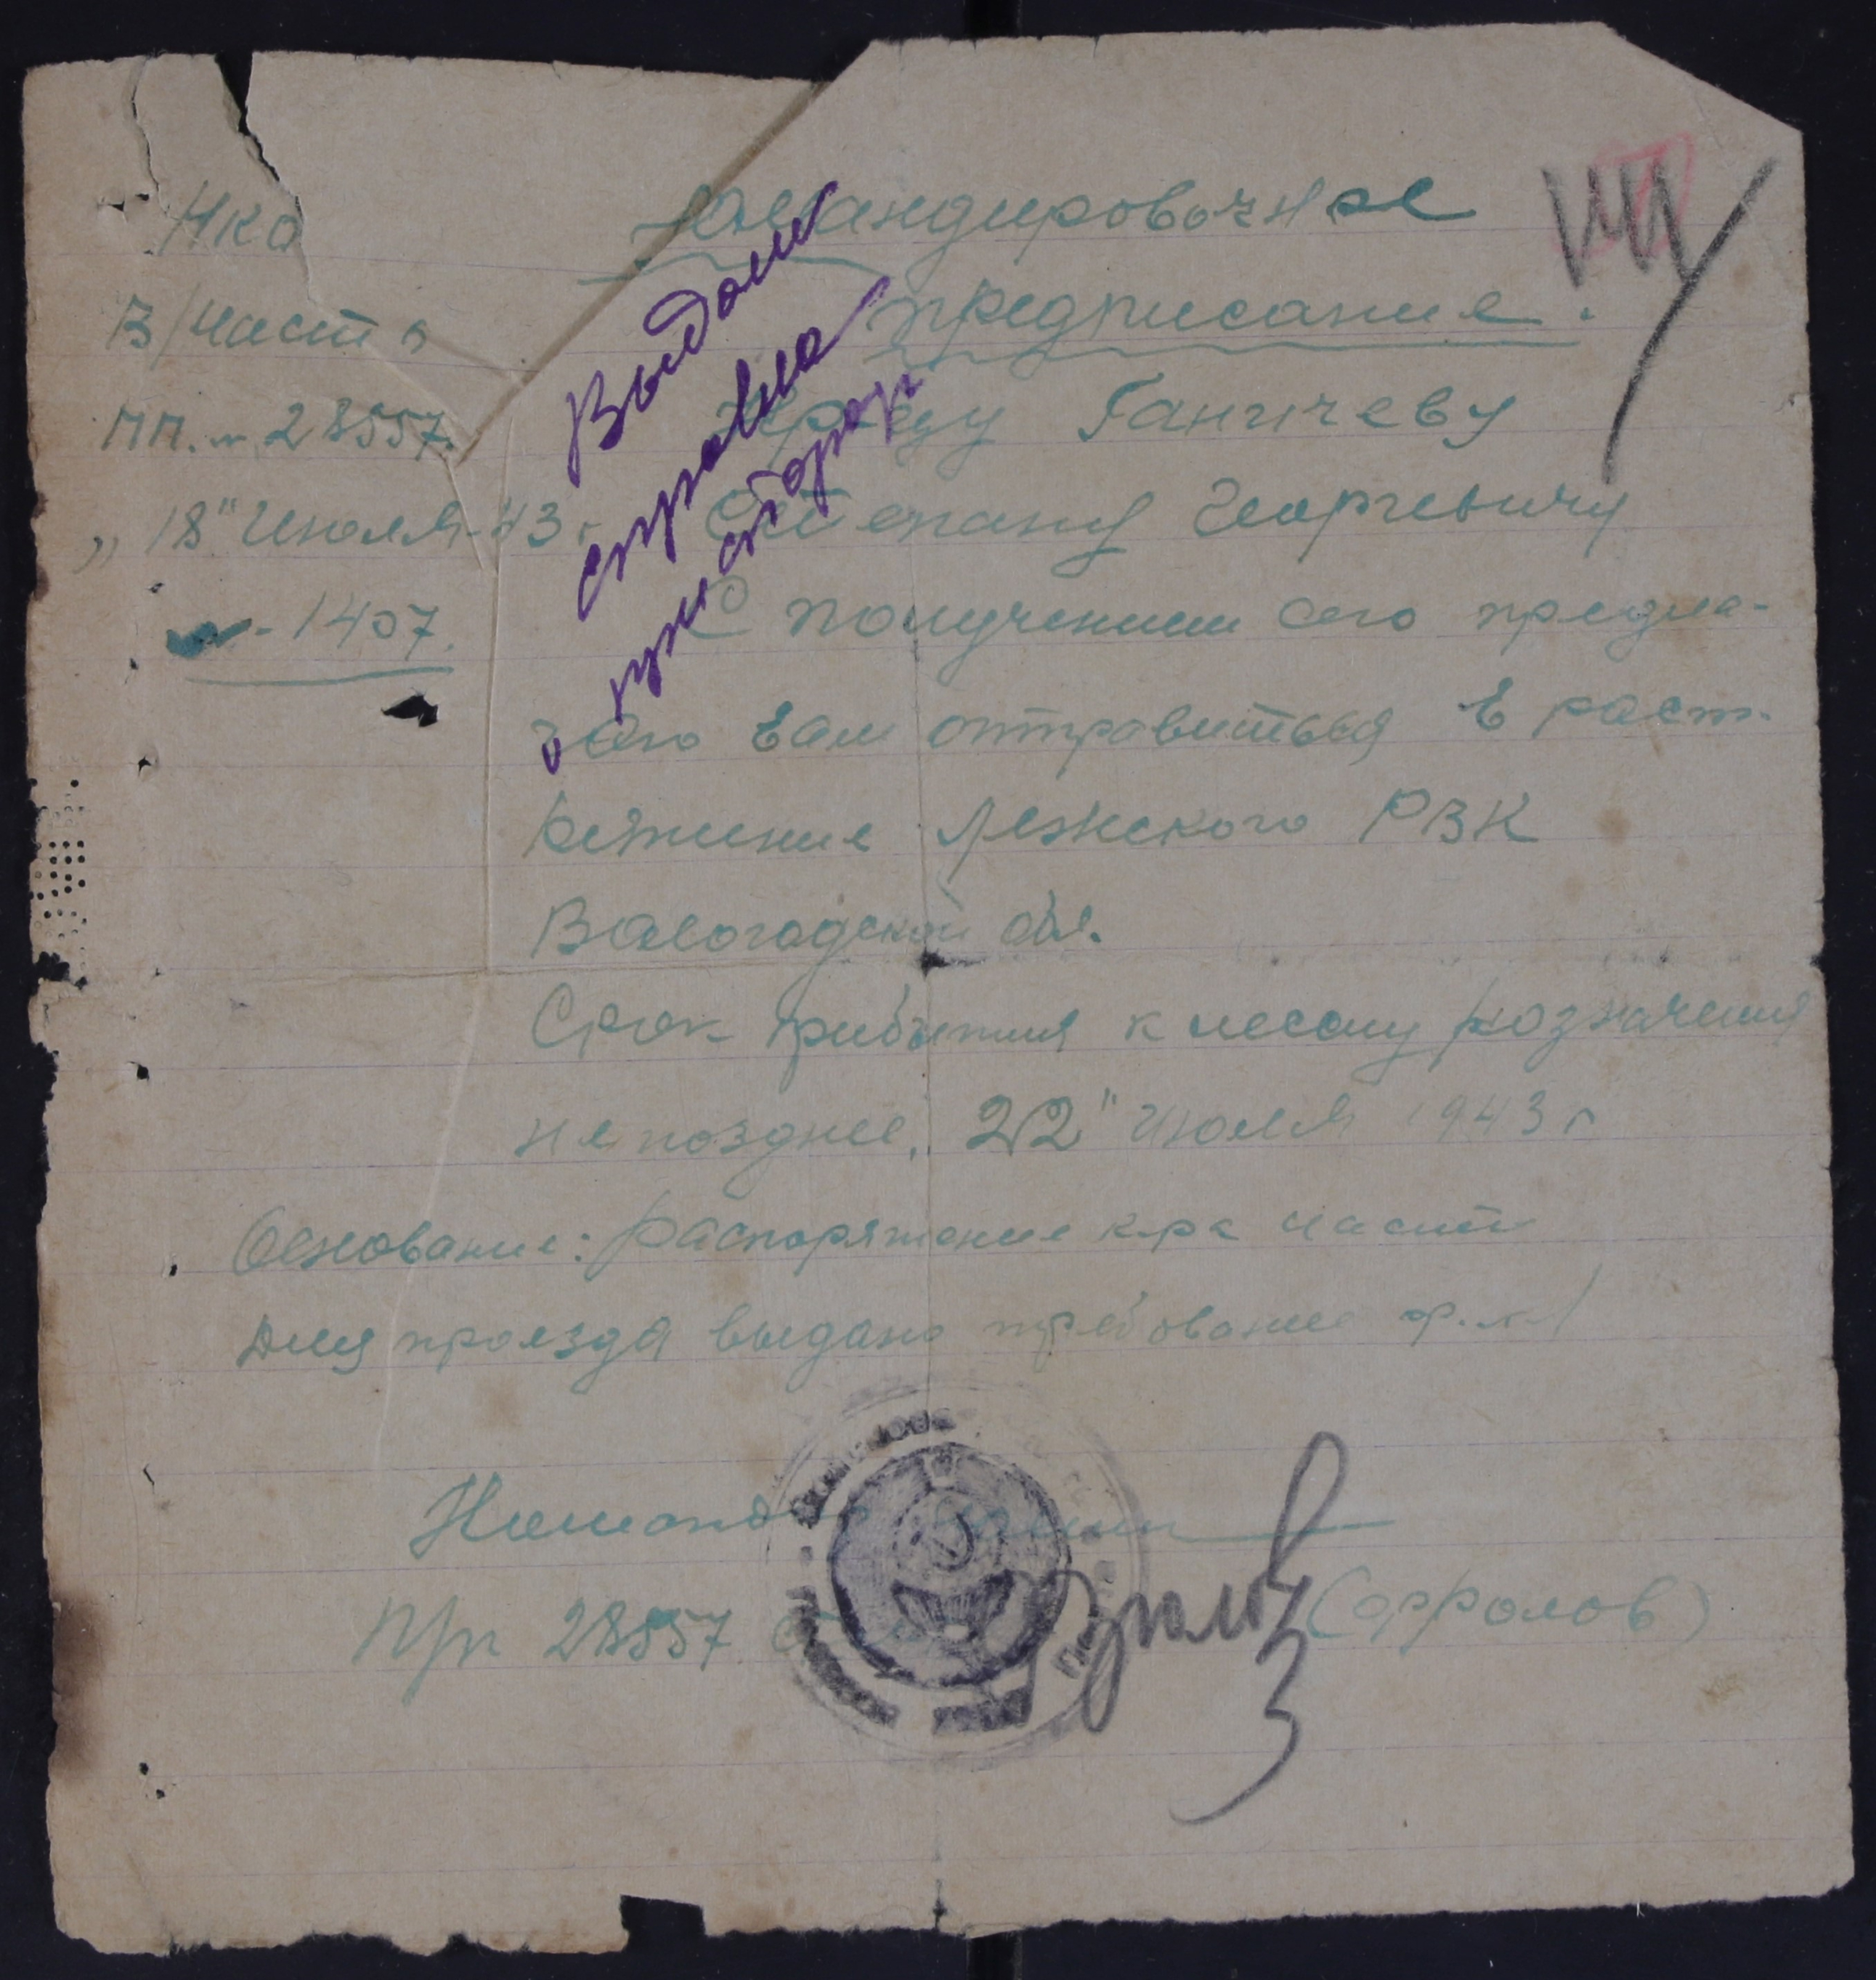 НКО
В/часть
ПП. № 28557.
„18" Июля-43 г
№-1407.
Командировочное
предписание.
Кр-цу Ганичеву
Степану Георгевичу
С получением сего предла-
гаю вам отправиться в расп.
ряжение Лежского РВК
Вологодской обл.
Срок прибытия к месту назначения
не позднее „22" Июля 1943 г
Основание: распоряжение к-ра части
Для проезда выдано требование ф. №1
Командир части
П/п 28557
(Фролов)
Выдана
справка